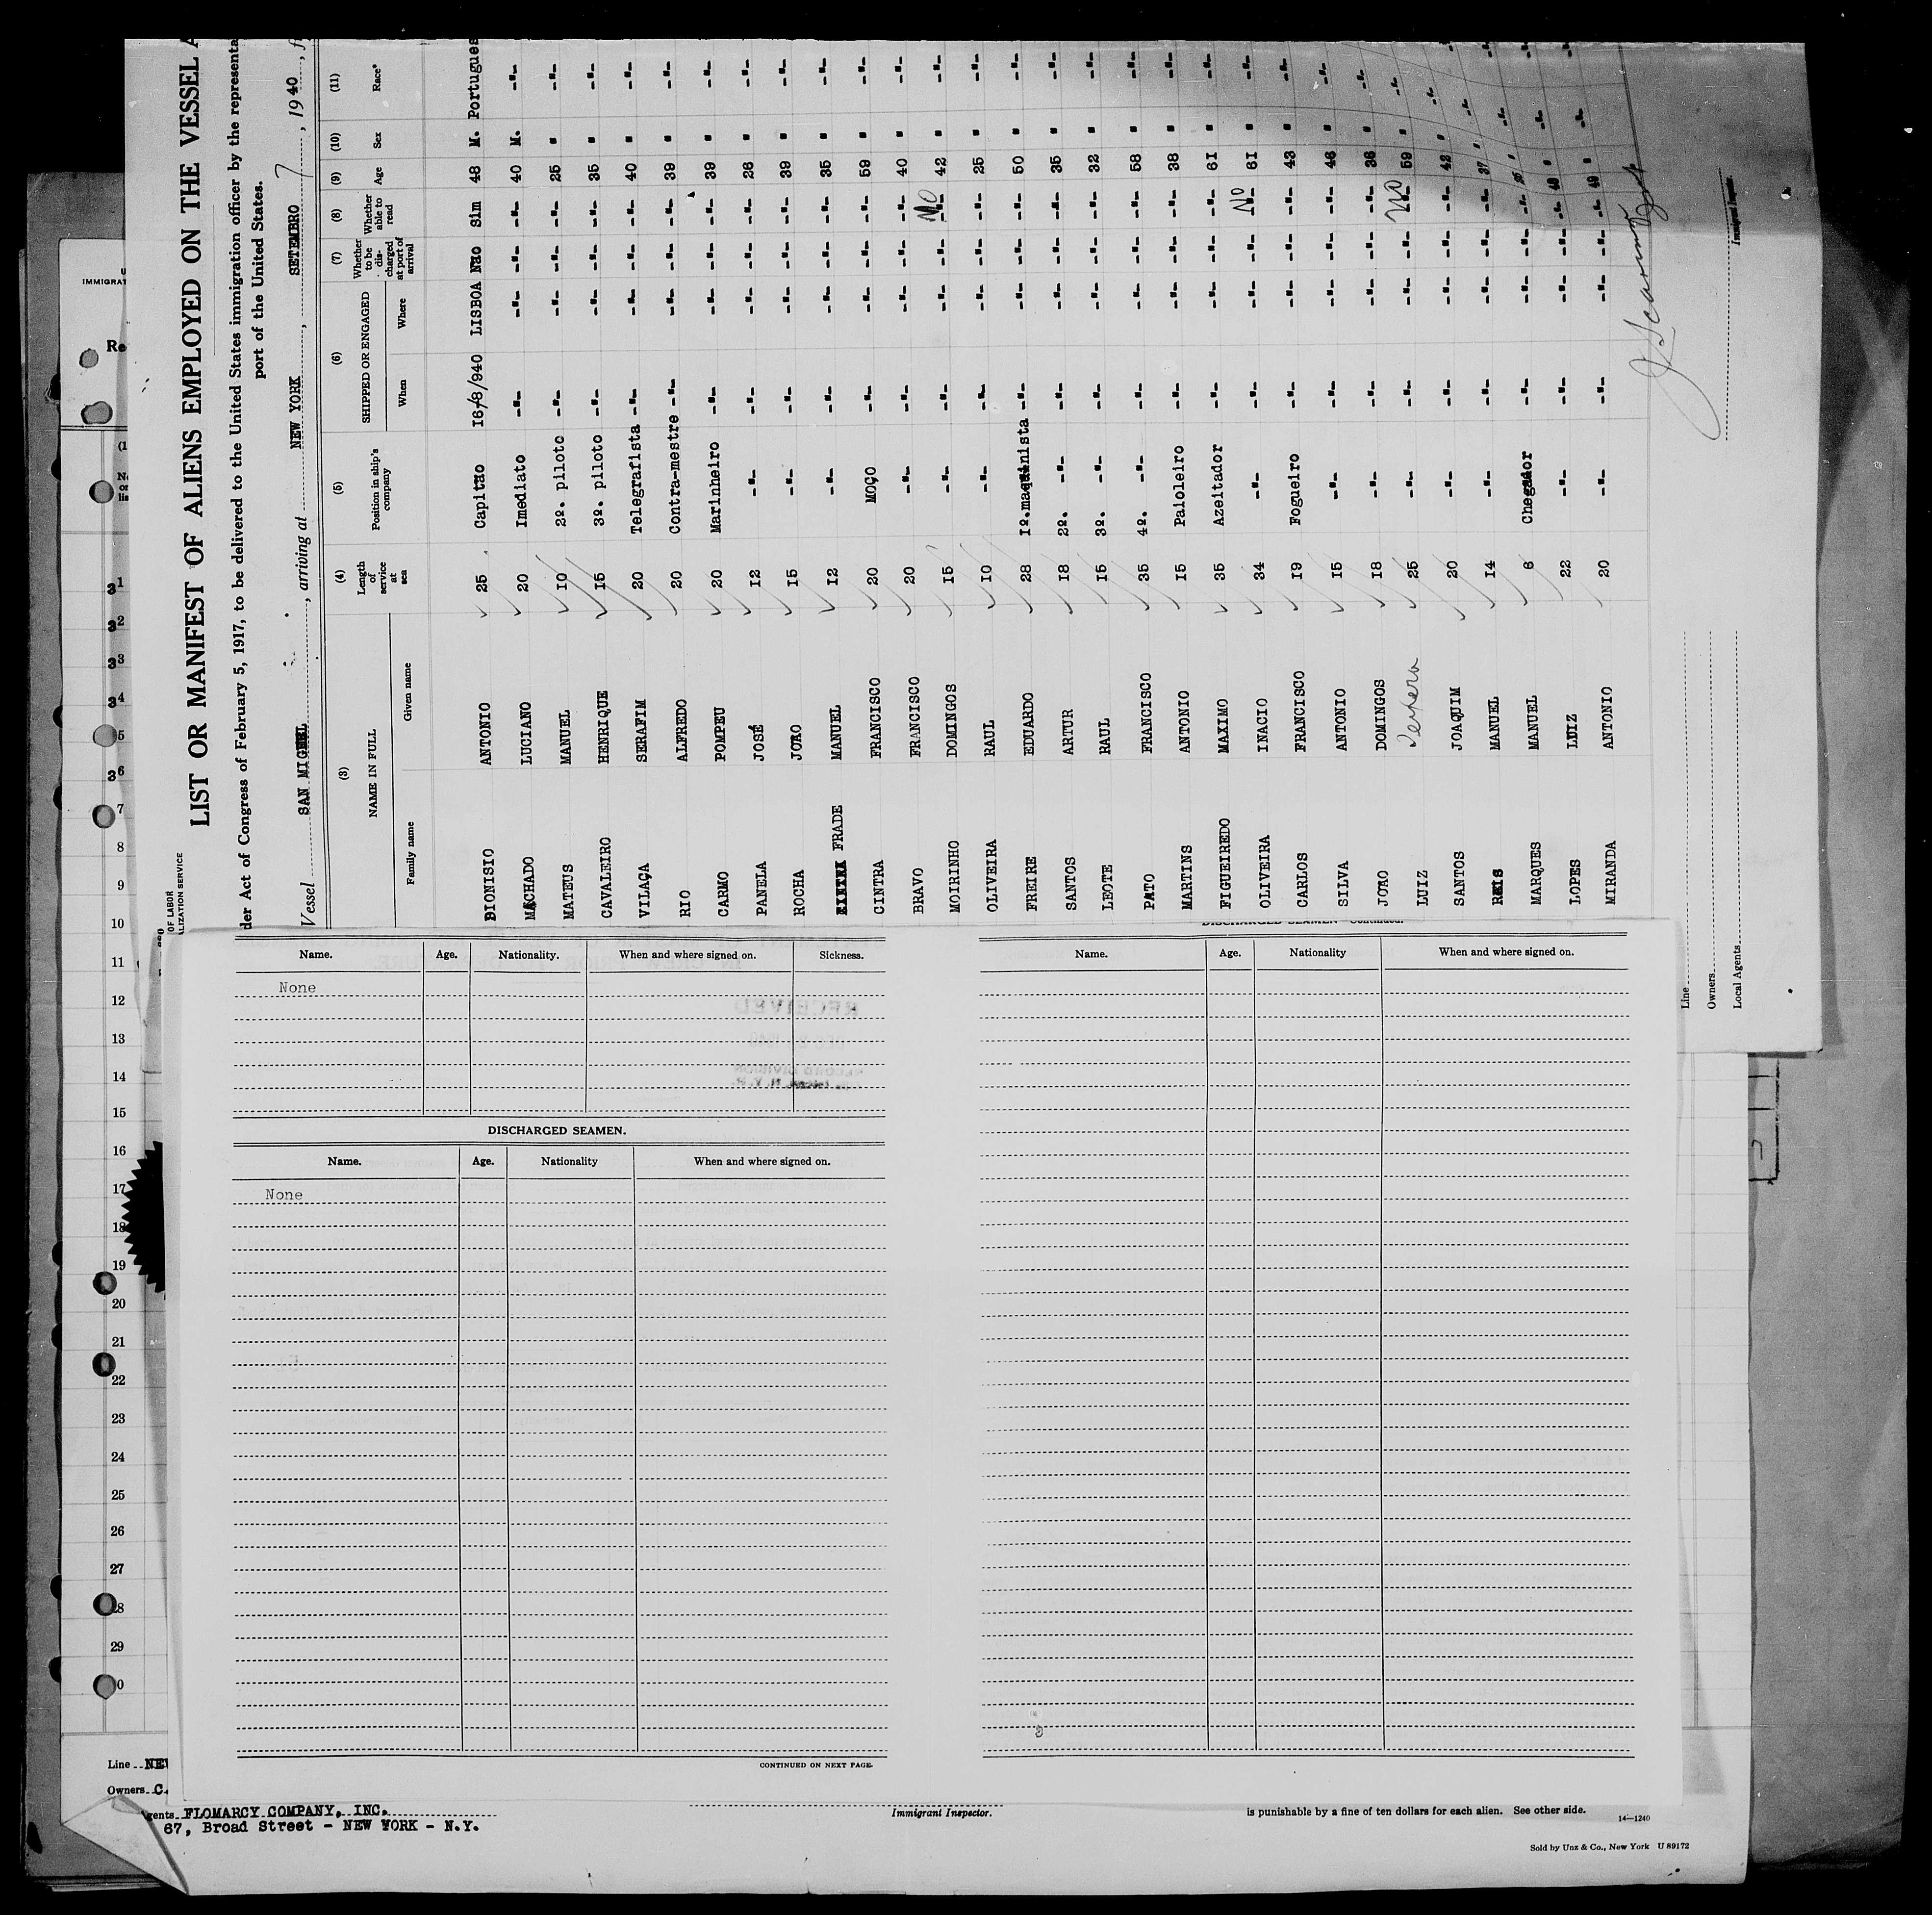 LIST OR MANIFEST OF ALIENS EMPLOYED ON THE VESSEL A
der Act of Congress of February 5, 1917, to be delivered to the United States immigration officer by the representa
port of the United States.
Vessel SAN MIGUEL, arriving at NEW YORK, SETEMBRO 7, 1940, f
(3) (4) (5) (6) (7) (8) (9) (10) (11)
NAME IN FULL Length of service at sea Position in ship's company SHIPPED OR ENGAGED Whether to be discharged at port of arrival Whether able to read Age Sex Race*
Family name Given name When Where
DIONISIO ANTONIO 25 Capitão 16/8/940 LISBOA Não Sim 48 M. Portugues
MACHADO LUCIANO 20 Imediato -"- -"- -"- -"- 40 M. -"-
MATEUS MANUEL 10 2º. piloto -"- -"- -"- -"- 25 " -"-
CAVALEIRO HENRIQUE 15 3º. piloto -"- -"- -"- -"- 35 " -"-
VILAÇA SERAFIM 20 Telegrafista -"- -"- -"- -"- 40 " -"-
RIO ALFREDO 20 Contra-mestre -"- -"- -"- -"- 39 " -"-
CARMO POMPEU 20 Marinheiro -"- -"- -"- -"- 39 " -"-
PANELA JOSÉ 12 -"- -"- -"- -"- -"- 28 " -"-
ROCHA JOÃO 15 -"- -"- -"- -"- -"- 39 " -"-
FRADE MANUEL 12 -"- -"- -"- -"- -"- 35 " -"-
CINTRA FRANCISCO 20 MOÇO -"- -"- -"- -"- 59 " -"-
BRAVO FRANCISCO 20 -"- -"- -"- -"- -"- 40 " -"-
MOIRINHO DOMINGOS 15 -"- -"- -"- -"- NO 42 " -"-
OLIVEIRA RAUL 10 -"- -"- -"- -"- -"- 25 " -"-
FREIRE EDUARDO 28 1º.maquinista -"- -"- -"- -"- 50 " -"-
SANTOS ARTUR 18 2º. -"- -"- -"- -"- -"- 35 " -"-
LEOTE RAUL 15 3º. -"- -"- -"- -"- -"- 32 " -"-
PATO FRANCISCO 35 4º. -"- -"- -"- -"- -"- 58 " -"-
MARTINS ANTONIO 15 Paioleiro -"- -"- -"- -"- 38 " -"-
FIGUEIREDO MAXIMO 35 Azeitador -"- -"- -"- -"- 61 " -"-
OLIVEIRA INACIO 34 -"- -"- -"- -"- NO 61 " -"-
CARLOS FRANCISCO 19 Fogueiro -"- -"- -"- -"- 43 " -"-
SILVA ANTONIO 15 -"- -"- -"- -"- -"- 46 " -"-
JOÃO DOMINGOS 18 -"- -"- -"- -"- -"- 38 " -"-
LUIZ 25 -"- -"- -"- -"- NO 59 " -"-
SANTOS JOAQUIM 20 -"- -"- -"- -"- -"- 42 " -"-
REIS MANUEL 14 -"- -"- -"- -"- -"- 37 " -"-
MARQUES MANUEL 6 Chegador -"- -"- -"- -"- " -"-
LOPES LUIZ 22 -"- -"- -"- -"- -"- 48 " -"-
MIRANDA ANTONIO 20 -"- -"- -"- -"- -"- 49 "
Immigrant Inspector.
Line
Owners
Local Agents
OF LABOR
ALIZATION SERVICE
IMMIGRAT
Re
(1
No
on
lis
1
2
3
4
5
6
7
8
9
10
11
12
13
14
15
16
17
18
19
20
21
22
23
24
25
26
27
28
29
0
Name. Age. Nationality. When and where signed on. Sickness.
None
DISCHARGED SEAMEN.
Name. Age. Nationality When and where signed on.
None
CONTINUED ON NEXT PAGE.
DISCHARGED SEAMEN—Continued.
Name. Age. Nationality When and where signed on.
Line NEW
Owners C.
gents FLOMARCY COMPANY, INC.
67, Broad Street - NEW YORK - N.Y.
Immigrant Inspector.
is punishable by a fine of ten dollars for each alien. See other side.
14—1240
Sold by Unz & Co., New York U 89172